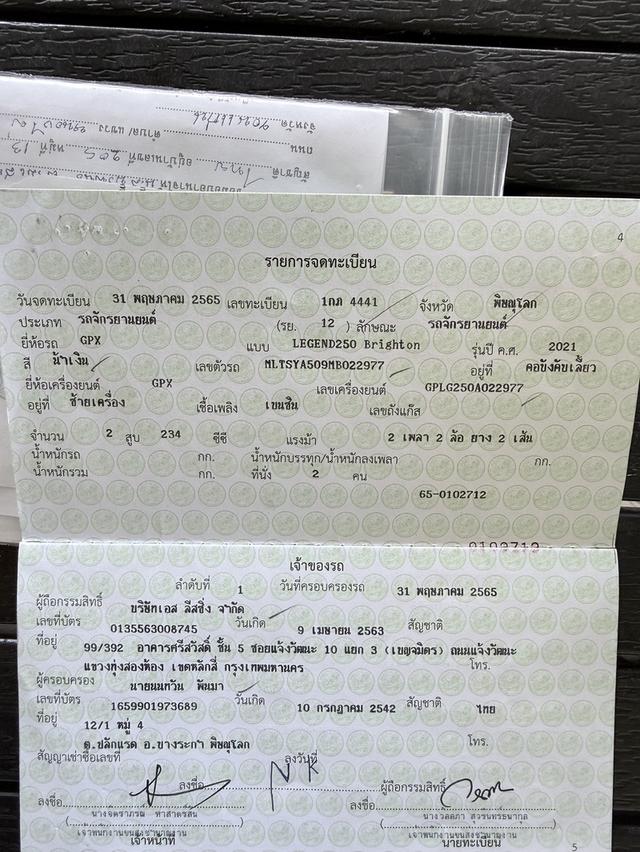 จังหวัด
ถนน ตำบล/แขวง
สัญชาติ ไทย อยู่บ้านเลขที่ หมู่ที่ 13
4
รายการจดทะเบียน
วันจดทะเบียน 31 พฤษภาคม 2565 เลขทะเบียน 1กภ 4441 จังหวัด พิษณุโลก
ประเภท รถจักรยานยนต์ (รย. 12 ) ลักษณะ รถจักรยานยนต์
ยี่ห้อรถ GPX แบบ LEGEND250 Brighton รุ่นปี ค.ศ. 2021
สี น้ำเงิน เลขตัวรถ MLTSYA509MB022977 อยู่ที่ คอบังคับเลี้ยว
ยี่ห้อเครื่องยนต์ GPX เลขเครื่องยนต์ GPLG250A022977
อยู่ที่ ซ้ายเครื่อง เชื้อเพลิง เบนซิน เลขถังแก๊ส
จำนวน 2 สูบ 234 ซีซี แรงม้า 2 เพลา 2 ล้อ ยาง 2 เส้น
น้ำหนักรถ กก. น้ำหนักบรรทุก/น้ำหนักลงเพลา กก.
น้ำหนักรวม กก. ที่นั่ง 2 คน
65-0102712
เจ้าของรถ
ลำดับที่ 1 วันที่ครอบครองรถ 31 พฤษภาคม 2565
ผู้ถือกรรมสิทธิ์ บริษัทเอส ลีสซิ่ง จำกัด
เลขที่บัตร 0135563008745 วันเกิด 9 เมษายน 2563 สัญชาติ
ที่อยู่ 99/392 อาคารศรีสวัสดิ์ ชั้น 5 ซอยแจ้งวัฒนะ 10 แยก 3 (เบญจมิตร) ถนนแจ้งวัฒนะ
แขวงทุ่งสองห้อง เขตหลักสี่ กรุงเทพมหานคร โทร.
ผู้ครอบครอง นายนนทวัน พันมา
เลขที่บัตร 1659901973689 วันเกิด 10 กรกฎาคม 2542 สัญชาติ ไทย
ที่อยู่ 12/1 หมู่ 4
ต.ปลักแรด อ.บางระกำ พิษณุโลก โทร.
สัญญาเช่าซื้อเลขที่ ลงวันที่
ลงชื่อ ผู้ถือกรรมสิทธิ์
ลงชื่อ ลงชื่อ
เจ้าพนักงานขนส่งชำนาญงาน เจ้าพนักงานขนส่งชำนาญงาน
เจ้าหน้าที่ นายทะเบียน
5